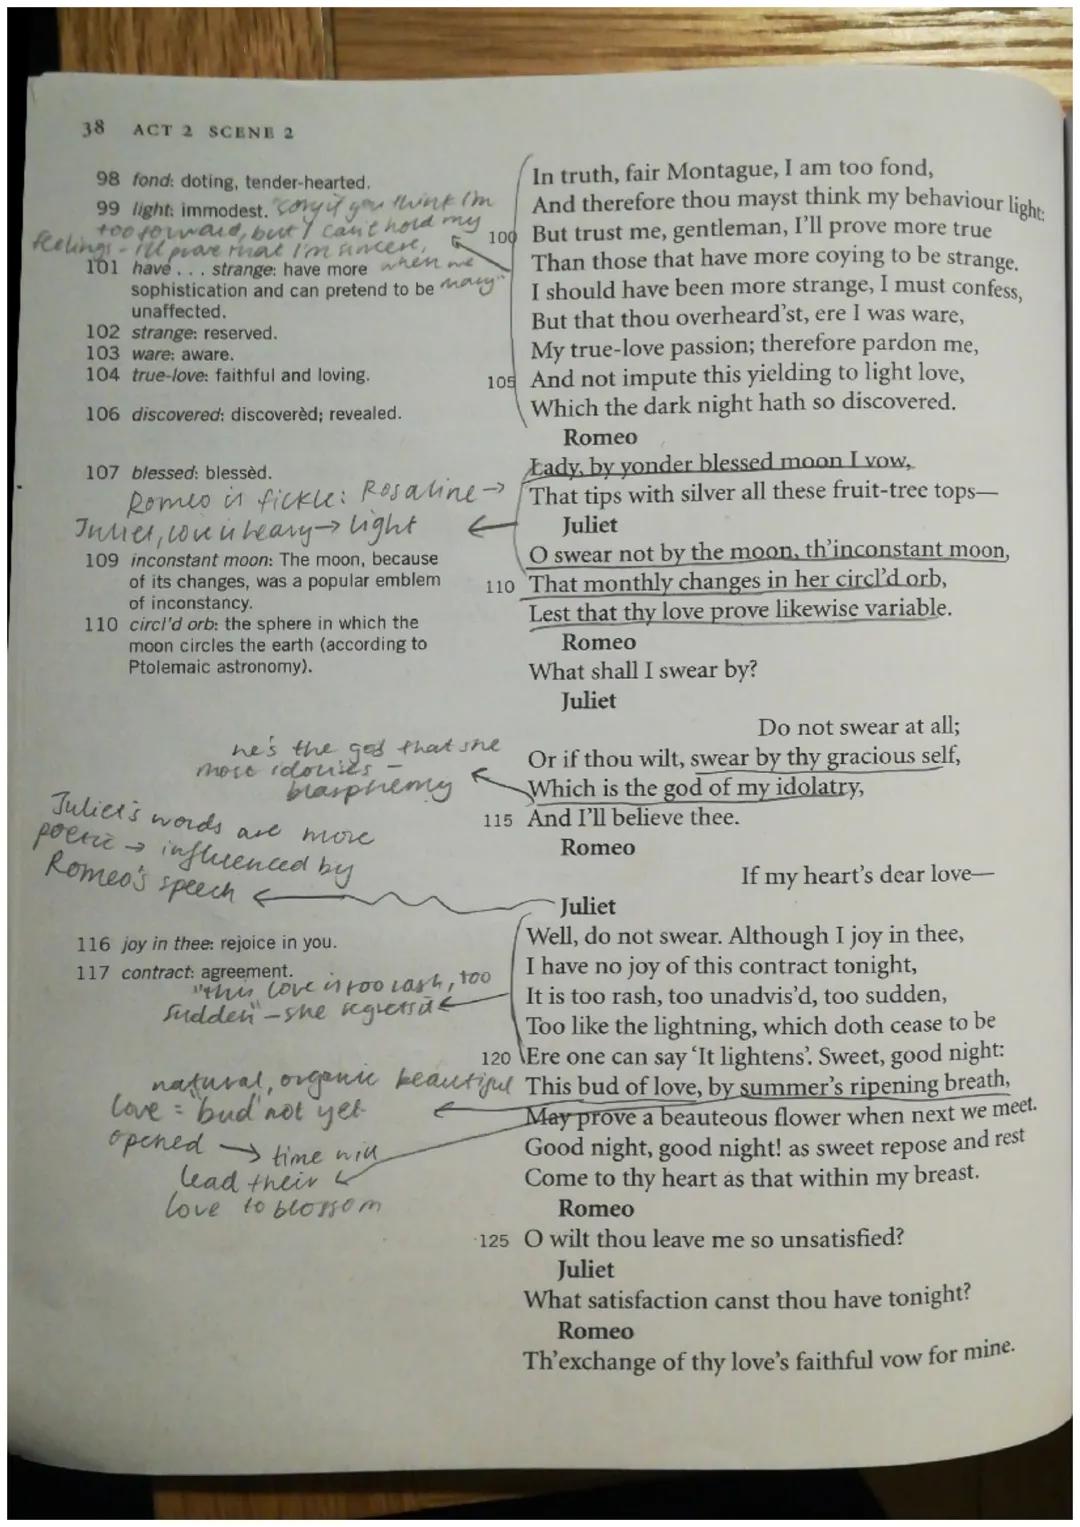 38 ACT 2 SCENE 2
98 fond: doting, tender-hearted.
99 light: immodest. "sorry if you think I'm
too forward, but I can't hold my
feelings - I'll prove that I'm sincere,
when we
marry"
101 have . . . strange: have more
sophistication and can pretend to be
unaffected.
102 strange: reserved.
103 ware: aware.
104 true-love: faithful and loving.
106 discovered: discoverèd; revealed.
107 blessed: blessèd.
Romeo is fickle: Rosaline →
Juliet, love is heavy → light
109 inconstant moon: The moon, because
of its changes, was a popular emblem
of inconstancy.
110 circl'd orb: the sphere in which the
moon circles the earth (according to
Ptolemaic astronomy).
he's the god that she
most idolises -
blasphemy
Juliet's words are more
poetic → influenced by
Romeo's speech
116 joy in thee: rejoice in you.
117 contract: agreement.
"this love is too rash, too
sudden" - she regrets it
natural, organic beautiful
love = 'bud' not yet
opened → time will
lead their
love to blossom
In truth, fair Montague, I am too fond,
And therefore thou mayst think my behaviour light:
100 But trust me, gentleman, I'll prove more true
Than those that have more coying to be strange.
I should have been more strange, I must confess,
But that thou overheard'st, ere I was ware,
My true-love passion; therefore pardon me,
105 And not impute this yielding to light love,
Which the dark night hath so discovered.
Romeo
Lady, by yonder blessed moon I vow,
That tips with silver all these fruit-tree tops—
Juliet
O swear not by the moon, th'inconstant moon,
110 That monthly changes in her circl'd orb,
Lest that thy love prove likewise variable.
Romeo
What shall I swear by?
Juliet
Do not swear at all;
Or if thou wilt, swear by thy gracious self,
Which is the god of my idolatry,
115 And I'll believe thee.
Romeo
If my heart's dear love—
Juliet
Well, do not swear. Although I joy in thee,
I have no joy of this contract tonight,
It is too rash, too unadvis'd, too sudden,
Too like the lightning, which doth cease to be
120 Ere one can say 'It lightens'. Sweet, good night:
This bud of love, by summer's ripening breath,
May prove a beauteous flower when next we meet.
Good night, good night! as sweet repose and rest
Come to thy heart as that within my breast.
Romeo
125 O wilt thou leave me so unsatisfied?
Juliet
What satisfaction canst thou have tonight?
Romeo
Th'exchange of thy love's faithful vow for mine.